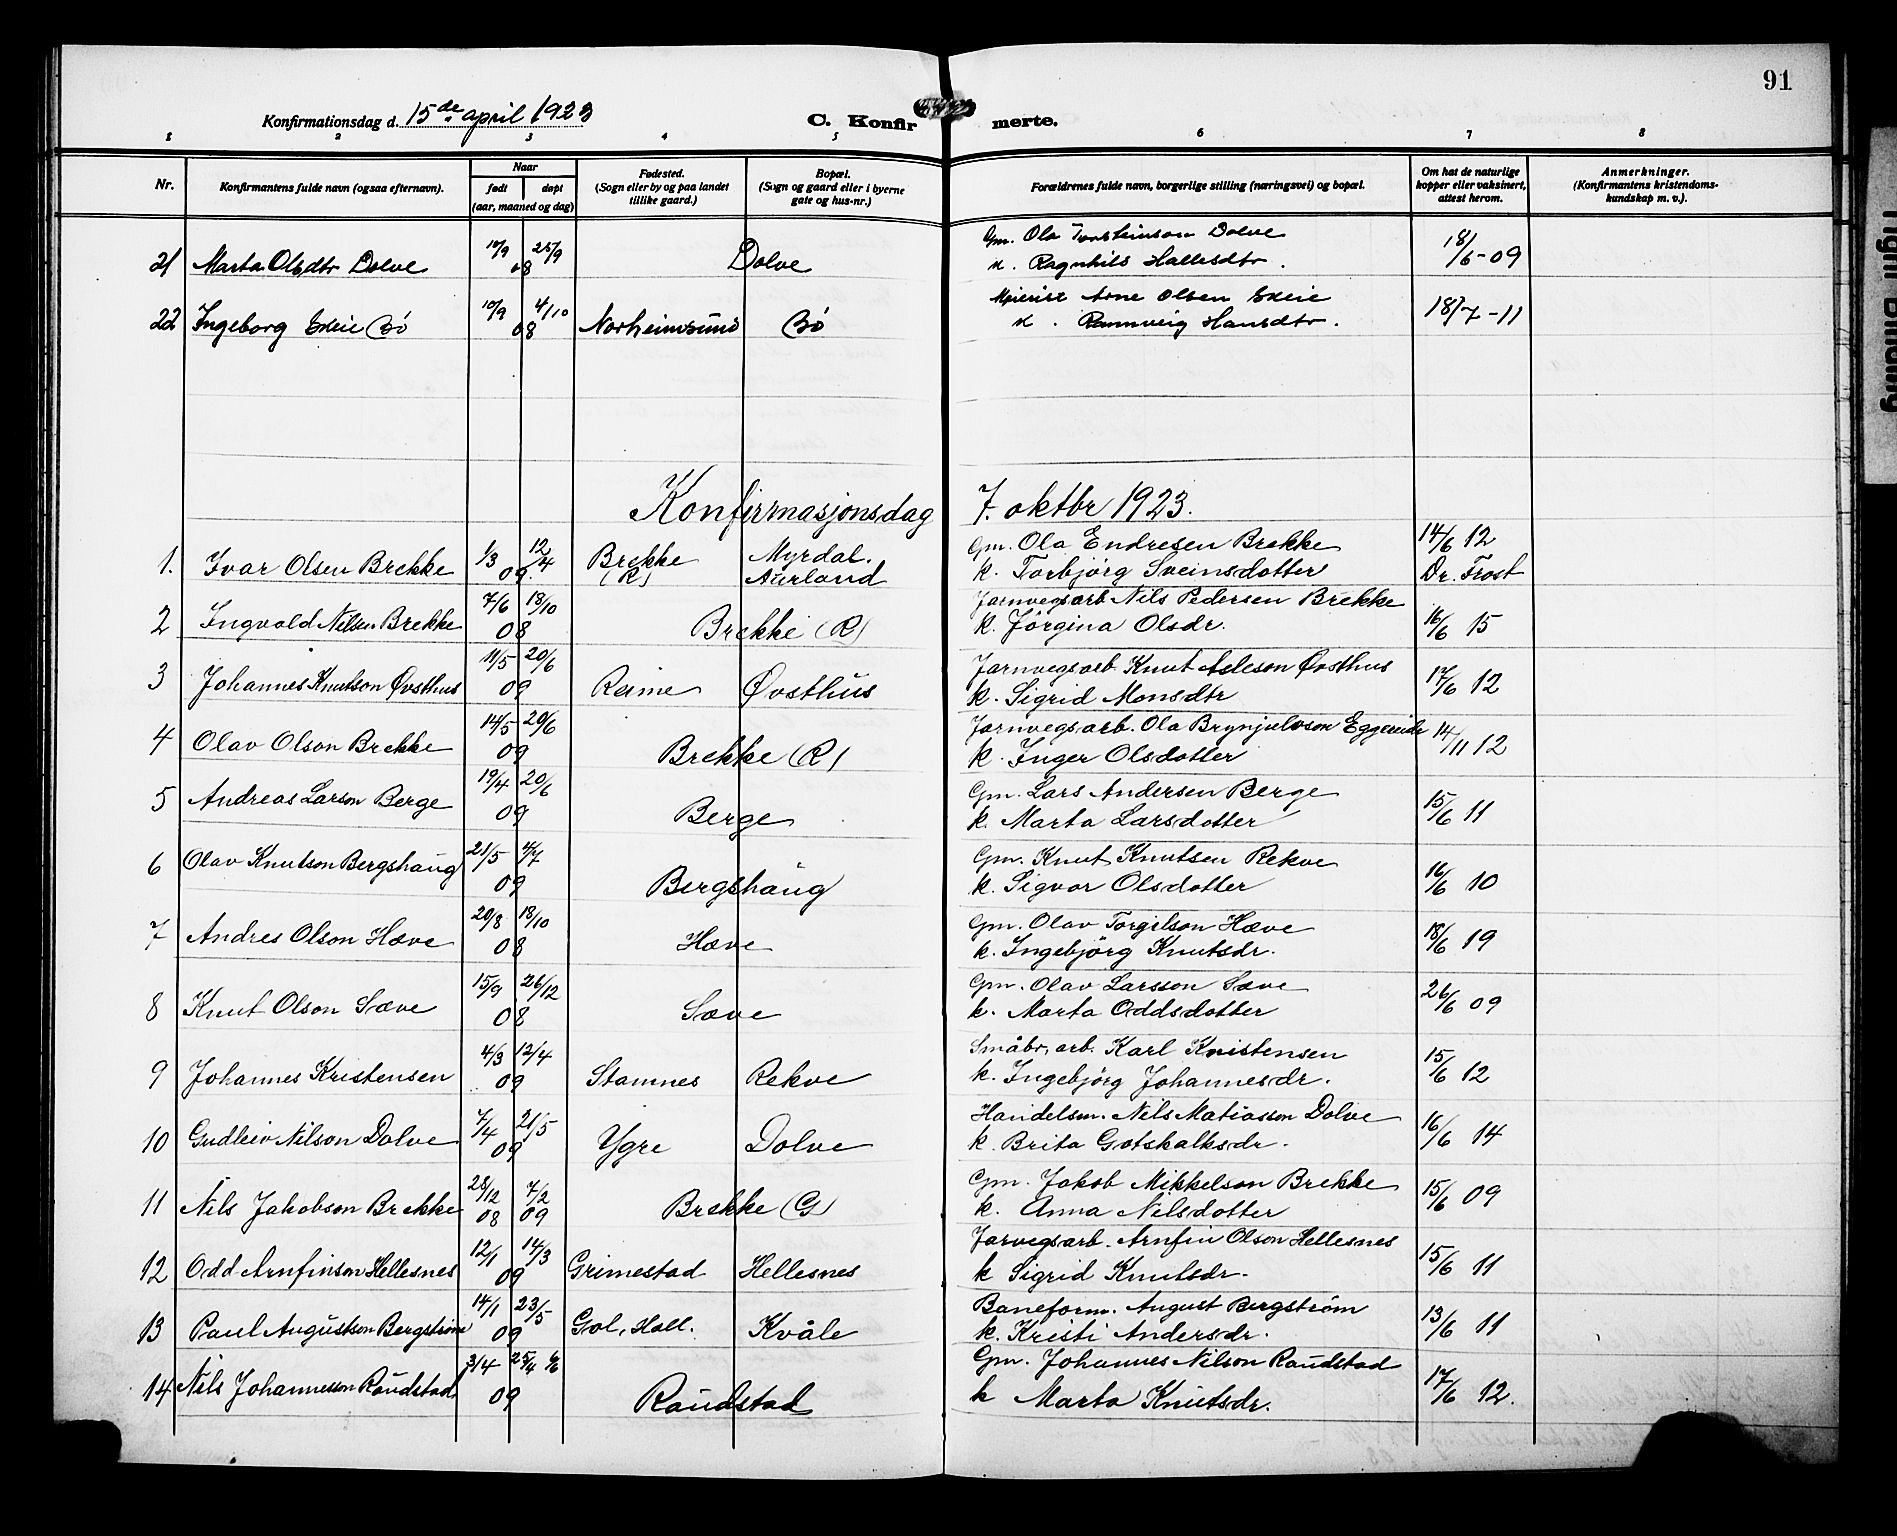 91
Konfirmationsdag d. 15de april 1923
C. Konfirmerte.
1 2 3 4 5 6 7 8
Nr.
Konfirmantens fulde navn (ogsaa efternavn).
Naar
født
døpt
(aar, maaned og dag)
Fødested.
(Sogn eller by og paa landet
tillike gaard.)
Bopæl.
(Sogn og gaard eller i byerne
gate og hus-nr.)
Forældrenes fulde navn, borgerlige stilling (næringsvei) og bopæl.
Om hat de naturlige
kopper eller vaksinert,
attest herom.
Anmerkninger.
(Konfirmantens kristendoms-
kundskap m. v.).
21 Marta Olsdtr Dolve 10/9 25/9 08 Dolve
Gm. Ola Torsteinson Dolve
k. Ragnhild Hallesdtr.
18/6-09
22 Ingeborg Skeie Bø 10/9 4/10 08 Norheimsund Bø
Meierist Arne Olsen Skeie
k. Rannveig Hansdtr.
18/7-11
Konfirmasjonsdag 7. oktbr 1923.
1. Ivar Olsen Brekke 1/3 12/4 09. Brekke (R) Myrdal. Aurland
Gm. Ola Endresen Brekke
k. Torbjørg Sveinsdotter
14/6 12
Dr. Frost
2 Ingvald Nilsen Brekke 7/6 18/10 08 Brekke (R)
Jarnvegsarb Nils Pedersen Brekke
k. Jørgina Olsdr.
16/6 15
3 Johannes Knutson Øvsthus 11/5 20/6 09 Reime Øvsthus
Jarnvegsarb Knut Asleson Øvsthus
k. Sigrid Monsdtr
17/6 12
4 Olav Olson Brekke 14/5 20/6 09 Brekke (R)
Jarnvegsarb. Ola Brynjulvson Eggereide
k. Inger Olsdotter
14/11 12
5 Andreas Larson Berge 19/4 20/6 09 Berge
Gm. Lars Andersen Berge
k. Marta Larsdotter
15/6 11
6 Olav Knutson Bergshaug 21/5 4/7 09 Bergshaug
Gm. Knut Knutsen Rekve
k. Sigvor Olsdotter
16/6 10
7 Andres Olson Hæve 20/8 18/10 08 Hæve
Gm. Olav Torgilson Hæve
k. Ingebjørg Knutsdr.
18/6 19
8 Knut Olson Sæve 15/9 26/12 08 Sæve
Gm. Olav Larsson Sæve
k. Marta Oddsdotter
26/6 09
9 Johannes Kristensen 4/3 12/4 09 Stamnes Rekve
Småbr. arb. Karl Kristensen
k. Ingebjørg Johannesdr.
15/6 12
10 Gudleiv Nilson Dolve 7/4 21/5 09 Ygre Dolve
Handelsm. Nils Matiasson Dolve
k. Brita Gotskalksdr.
16/6 14
11 Nils Jakobson Brekke 28/12 08 7/2 09 Brekke (G)
Gm. Jakob Mikkelson Brekke
k. Anna Nilsdotter
15/6 09
12 Odd Arnfinson Hellesnes 12/1 14/3 09 Grimestad Hellesnes
Jarvegsarb. Arnfin Olson Hellesnes
k Sigrid Knutsdr.
15/6 11
13 Paul Augustson Bergstrøm 14/1 23/5 09 Gol, Hall. Kvåle
Baneform. August Bergstrøm
k. Kristi Andersdr.
13/6 11
14 Nils Johannesson Raudstad 3/4 25/4 09 Raudstad
Gm. Johannes Nilson Raudstad
k Marta Knutsdr.
17/6 12.